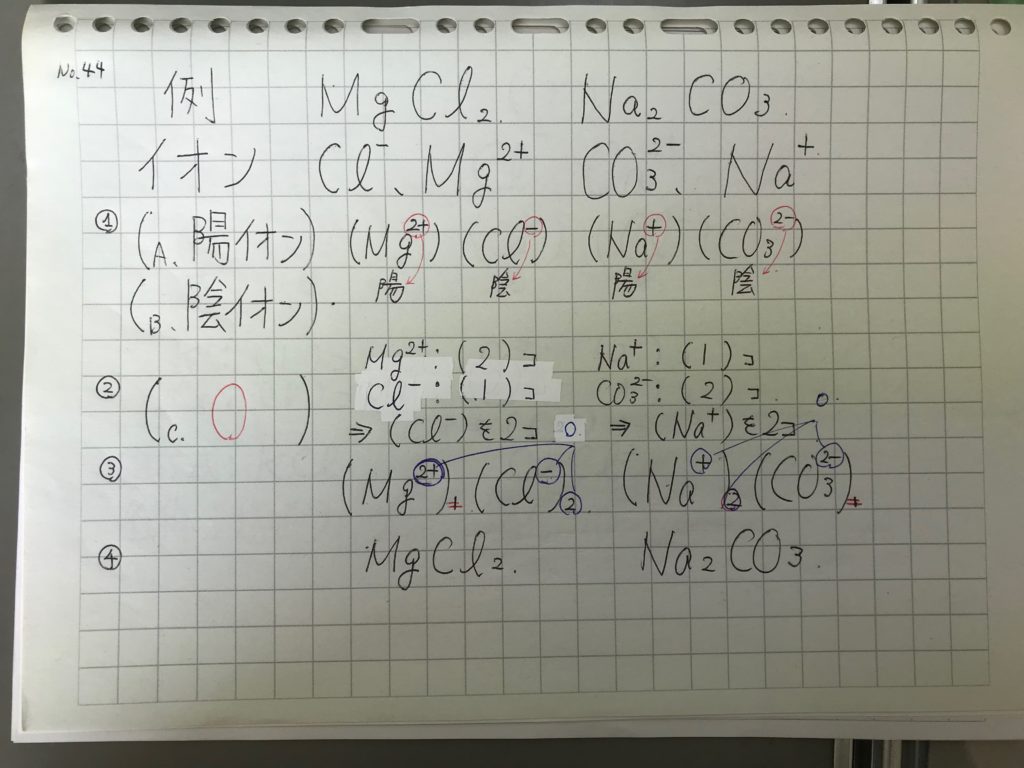 No.44
例 MgCl₂. Na₂CO₃.
イオン Cl⁻、Mg²⁺ CO₃²⁻、Na⁺
① (A.陽イオン) (Mg²⁺) (Cl⁻) (Na⁺) (CO₃²⁻)
陽 陰 陽 陰
(B.陰イオン).
Mg²⁺:(2)コ Na⁺:(1)コ
② Cl⁻:(1)コ CO₃²⁻:(2)コ.
(C. 0 ) ⇒(Cl⁻)を2コ 0 ⇒(Na⁺)を2コ 0
③ (Mg²⁺)₊(Cl⁻)₂. (Na⁺)₂(CO₃²⁻)₊
④ MgCl₂. Na₂CO₃.